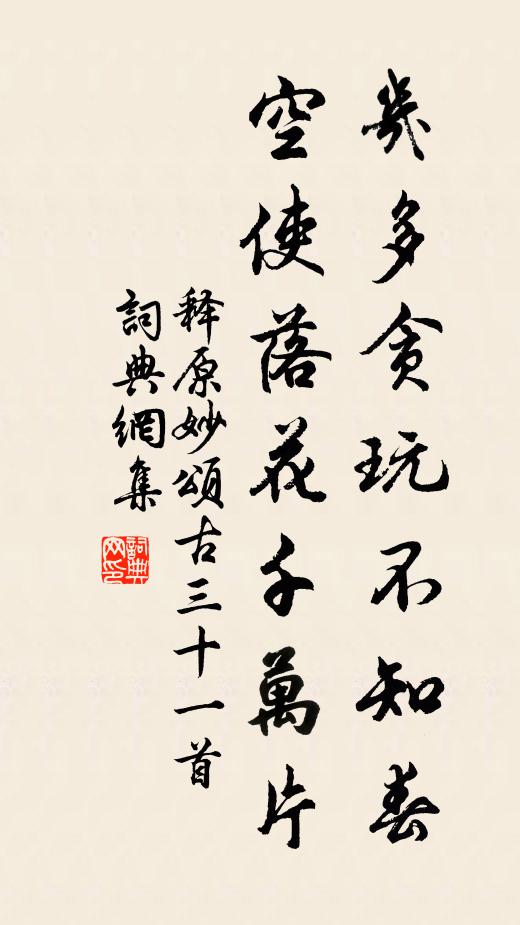 幾多貪玩不知春
空使落花千萬片
释原妙頌古三十一首
詞典網集
詞典网印